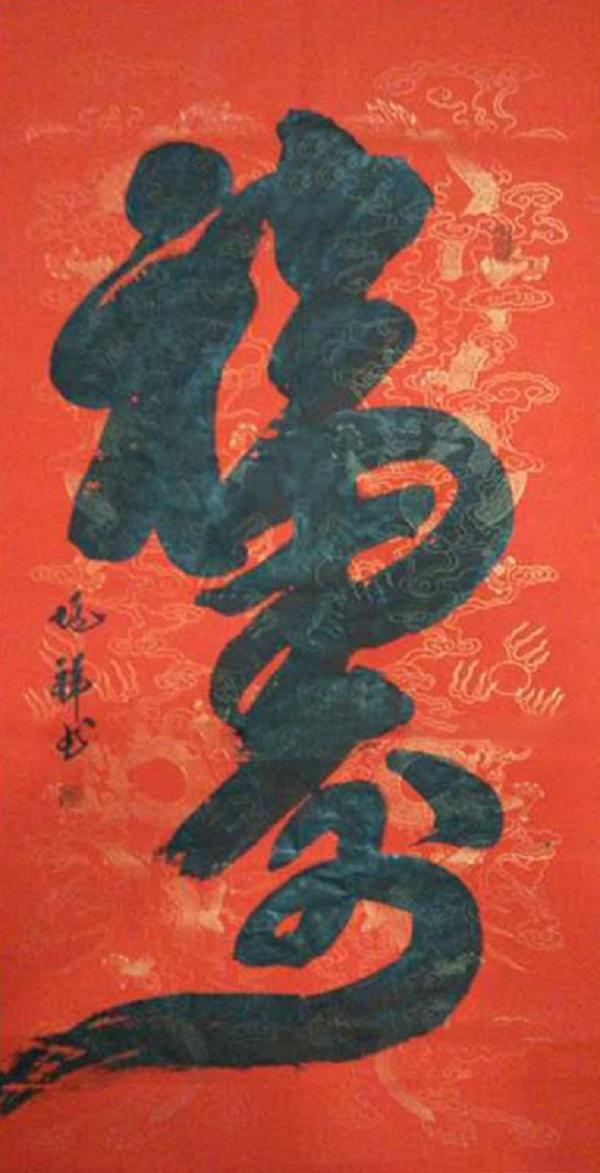 福寿
祥书